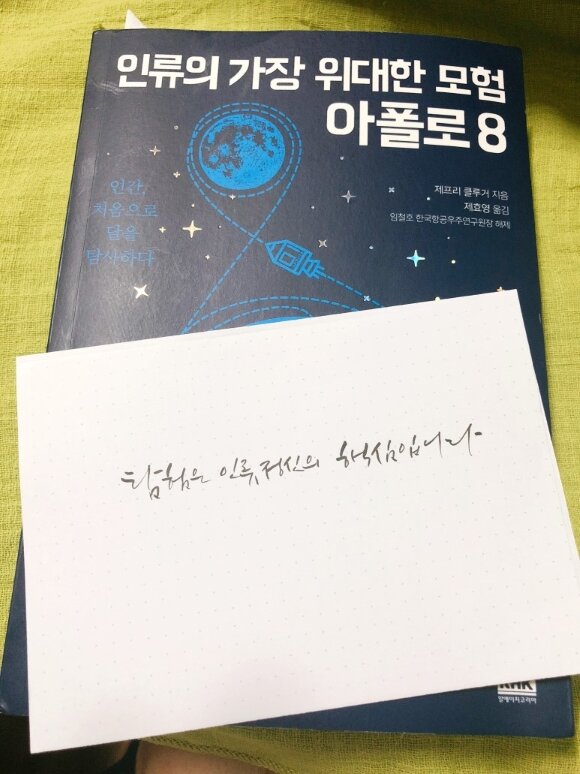 인류의 가장 위대한 모험
아폴로 8
제프리 클루거 지음
제효영 옮김
임철호 한국항공우주연구원장 해제
인간,
처음으로
달을
탐사하다
탐험은 인류, 정신의 핵심입니다
RHK
알에이치코리아